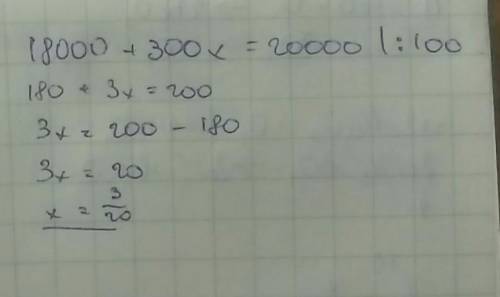 18000 + 300x = 20000 |:100
180 + 3x = 200
3x = 200 - 180
3x = 20
x = 3/20